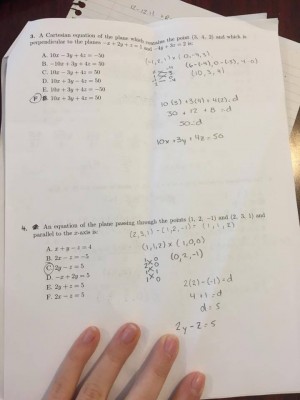 3. A Cartesian equation of the plane which contains the point (3, 4, 2) and which is
perpendicular to the planes -x + 2y + z = 1 and -4y + 3z = 2 is:
A. 10x - 3y + 4z = -50
B. -10x + 3y + 4z = 50
C. 10x - 3y + 4z = 50
D. 10x + 3y - 4z = 50
E. 10x + 3y + 4z = -50
F. 10x + 3y + 4z = 50
(10, 3, 4)
10(3) + 3(4) + 4(2) = d
30 + 12 + 8 = d
50 = d
10x + 3y + 4z = 50
4. An equation of the plane passing through the points (1, 2, -1) and (2, 3, 1) and
parallel to the x-axis is:
(2,3,1) - (1,2,-1) = (1,1,2)
A. x + y - z = 4
B. 2x - z = -5
C. 2y - z = 5
D. -x + 2y = 5
E. 2y + z = 5
F. 2x - z = 5
(1,1,2) × (1,0,0)
(0,2,-1)
2(2) - (-1) = d
4 + 1 = d
d = 5
2y - z = 5